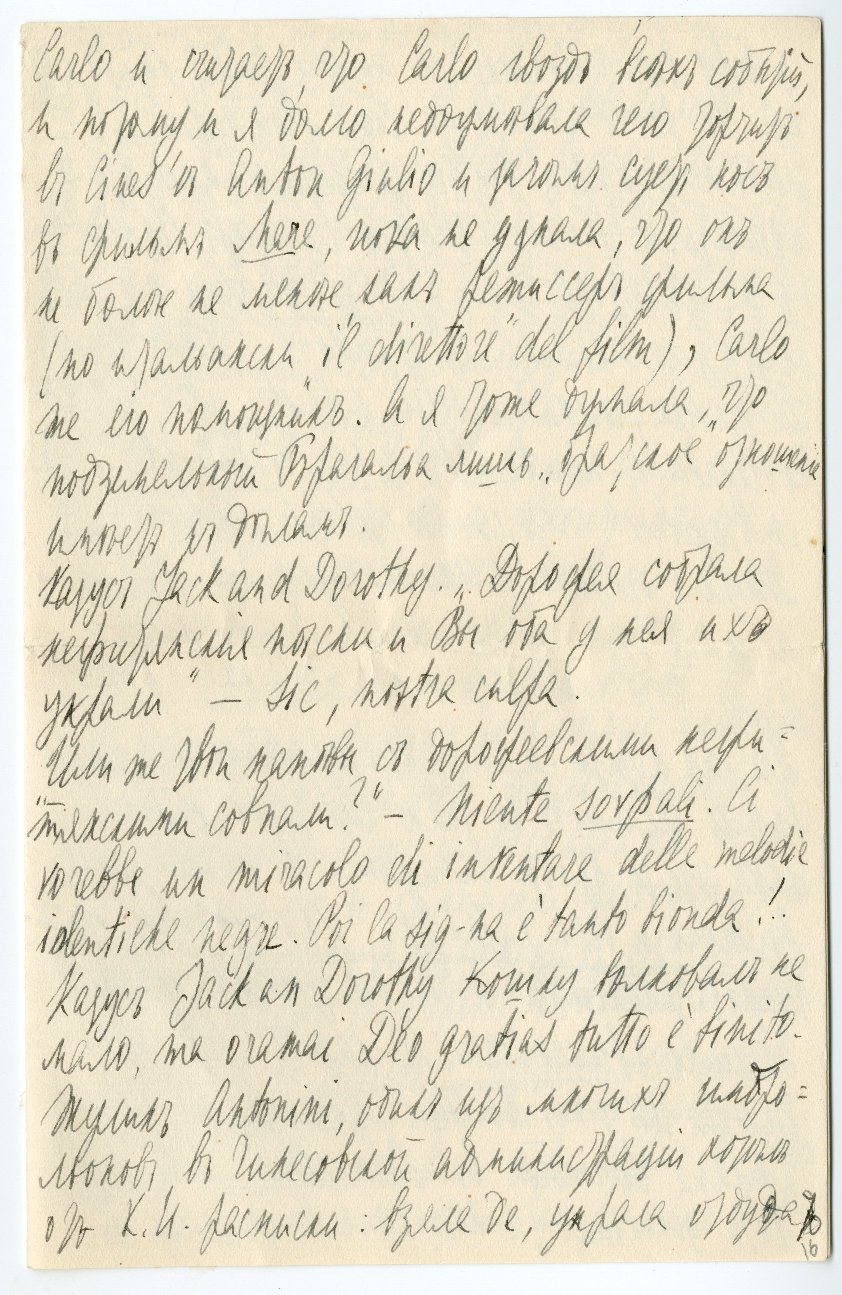 Carlo и считаетъ, что Carlo гвоздь всѣхъ событій,
и потому и я долго недоумѣвала чего торчитъ
въ Cines'ѣ Anton Giulio и зачѣмъ суетъ носъ
въ фильмъ Mare, пока не узнала, что онъ
не болѣе не менѣе, какъ режиссеръ фильма
(по итальянски "il direttore" del film), Carlo
же его помощникъ. А я тоже думала, что
подземельный Брагалья лишь „братское" отношеніе
имѣетъ къ дѣламъ.
Казусъ Jack and Dorothy. „Дорофея собрала
негритянскія пѣсни и Вы оба у нея ихъ
украли" — sic, nostra culpa.
"Или же твои напѣвы съ дорофеевскими негри=
тянскими совпали?" — Niente sovpali. Ci
vorebbe un miracolo di inventare delle melodie
identiche negre. Poi la sig-na è tanto bionda!..
Казусъ Jack an Dorothy Кошку волновалъ не
мало, ma oramai Deo gratias tutto è finito.
Жуликъ Antonini, одинъ изъ многихъ
въ Чинесовской администраціи
отъ К.И. расписки: взяла де, украла оттуда то
16